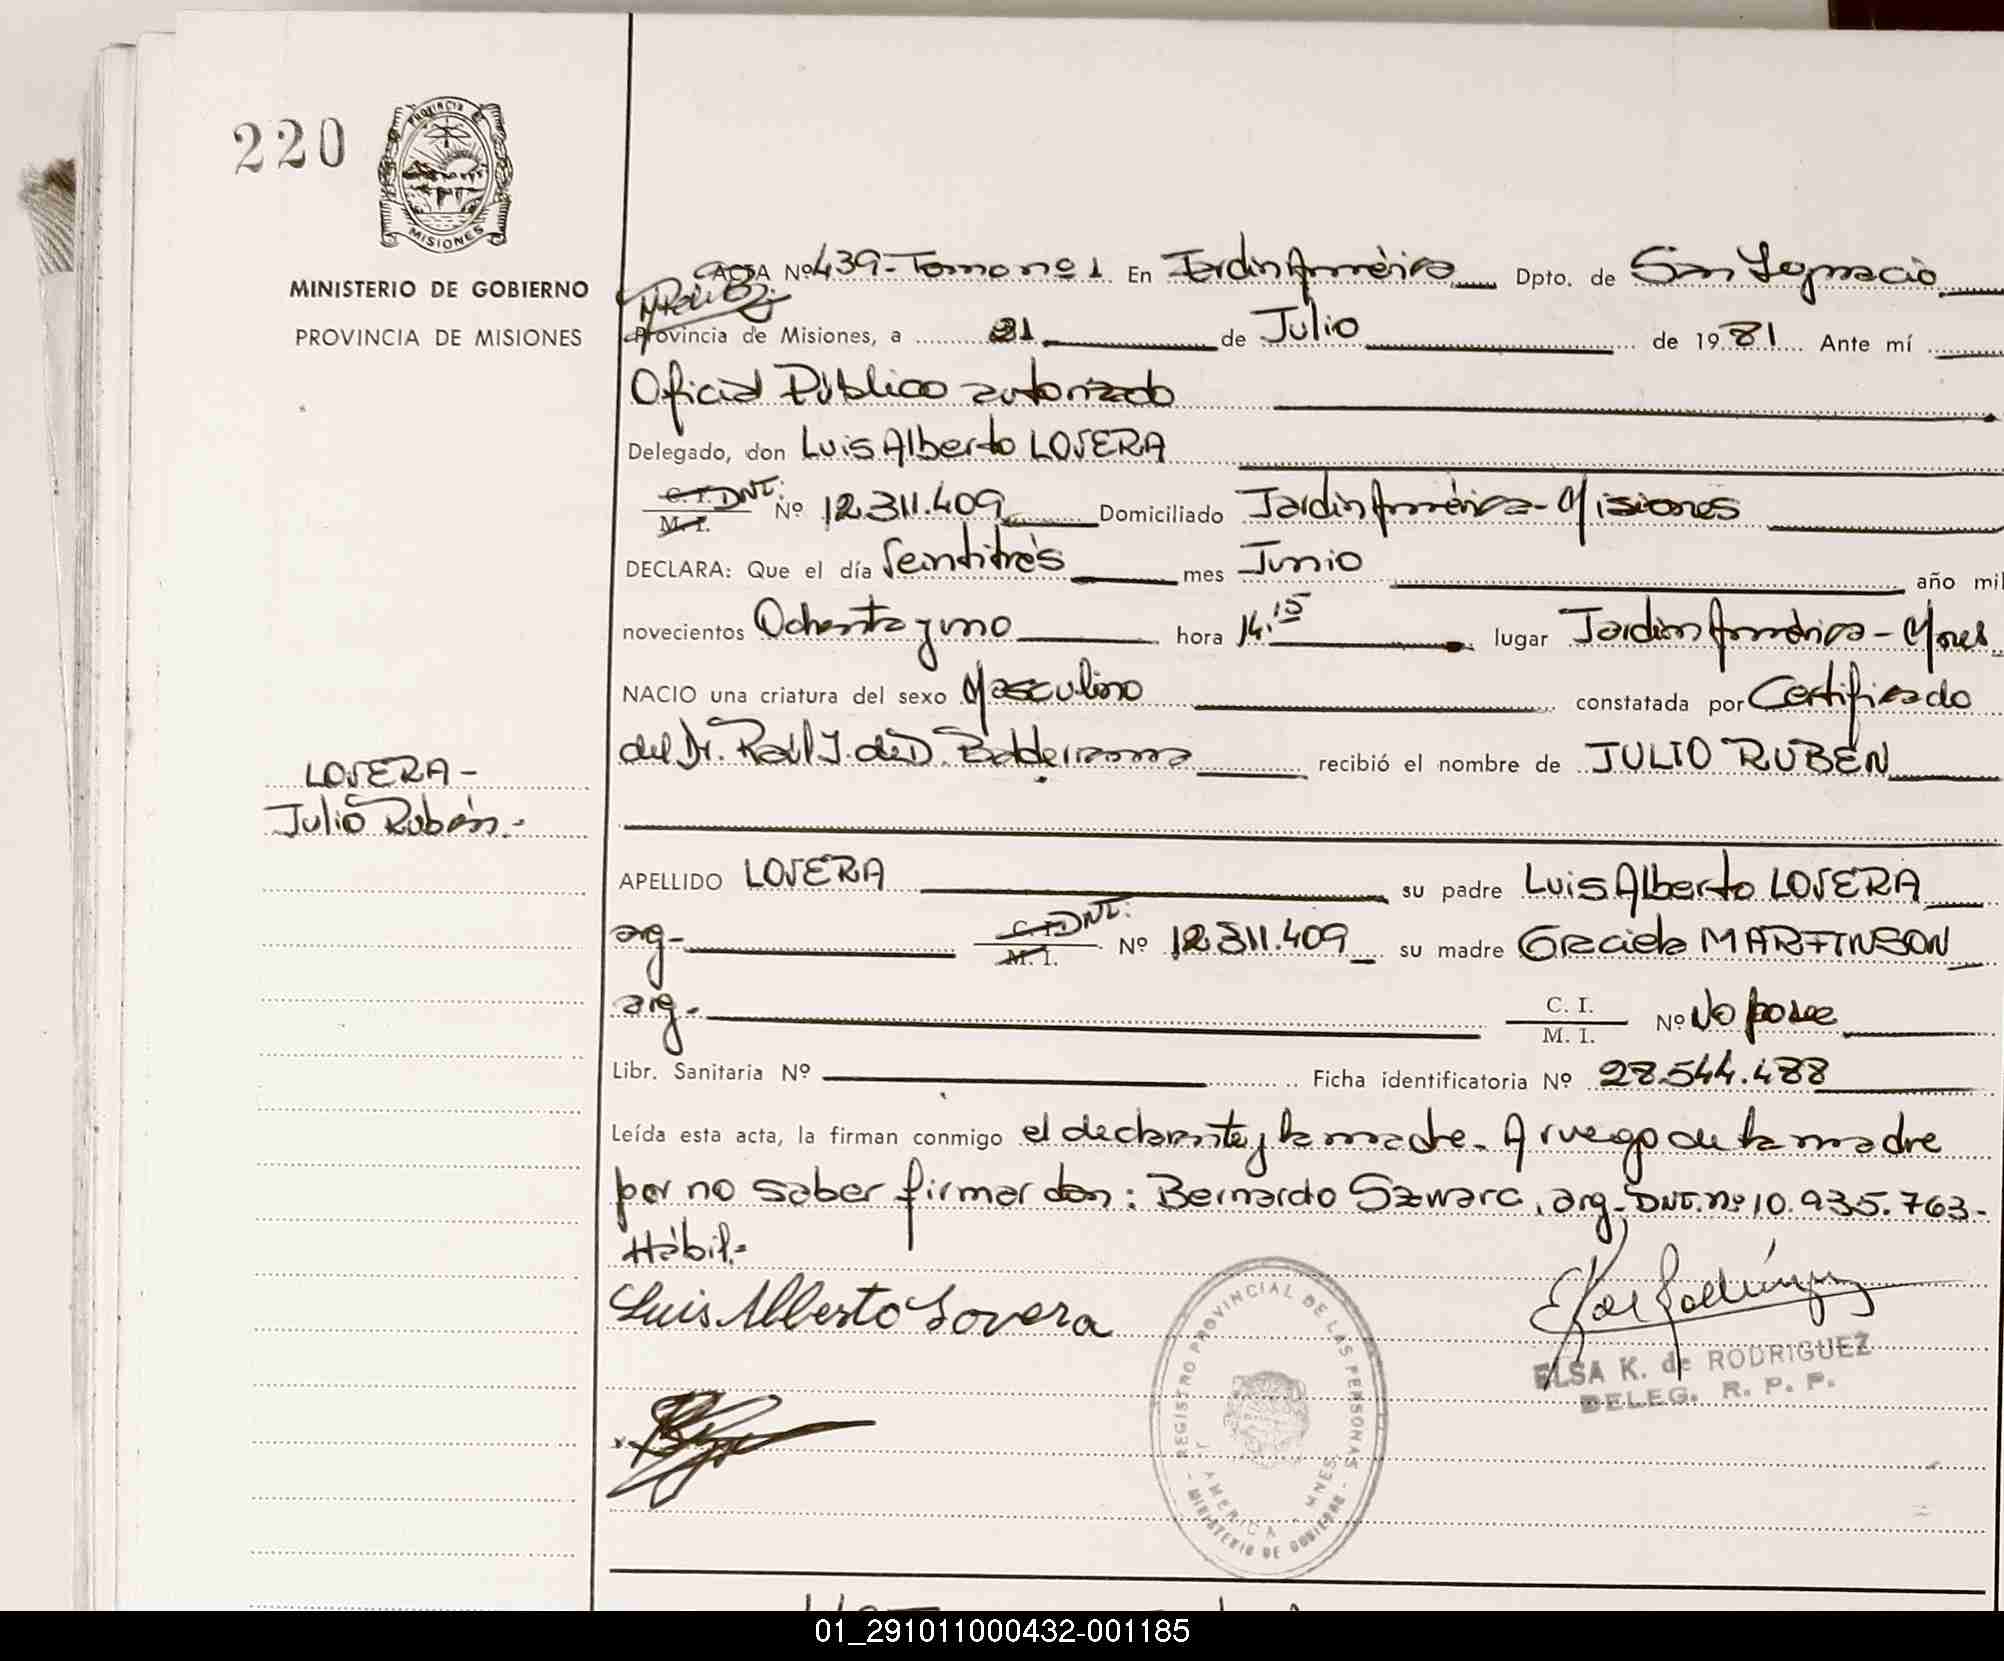 220
PROVINCIA DE
MISIONES
MINISTERIO DE GOBIERNO
PROVINCIA DE MISIONES
ACTA Nº 439-Tomo nº 1 En Jardín América Dpto. de San Ignacio
Provincia de Misiones, a 21 de Julio de 1981 Ante mí
Oficial Público autorizado
Delegado, don Luis Alberto LOVERA
C. I. DNI: M. I. Nº 12.311.409 Domiciliado Jardín América-Misiones
DECLARA: Que el día Veintitrés mes Junio año mil
novecientos Ochenta y uno hora 14.15 lugar Jardín América-Mnes
NACIO una criatura del sexo Masculino constatada por Certificado
del Dr. Raúl J. de D. Balderrama recibió el nombre de JULIO RUBÉN
LOVERA-
Julio Rubén.-
APELLIDO LOVERA su padre Luis Alberto LOVERA
arg- C. I. DNI: M. I. Nº 12.311.409 su madre Graciela MARTINSON
arg- C. I. M. I. Nº No posee
Libr. Sanitaria Nº Ficha identificatoria Nº 28.544.488
Leída esta acta, la firman conmigo el declarante y la madre. A ruego de la madre
por no saber firmar don: Bernardo Szwarc, arg- DNI. nº 10.935.763-
Hábil.-
Luis Alberto Lovera
REGISTRO PROVINCIAL DE LAS PERSONAS
J. AMERICA - MNES.
- MINISTERIO DE GOBIERNO -
ELSA K. de RODRIGUEZ
DELEG. R. P. P.
01_291011000432-001185